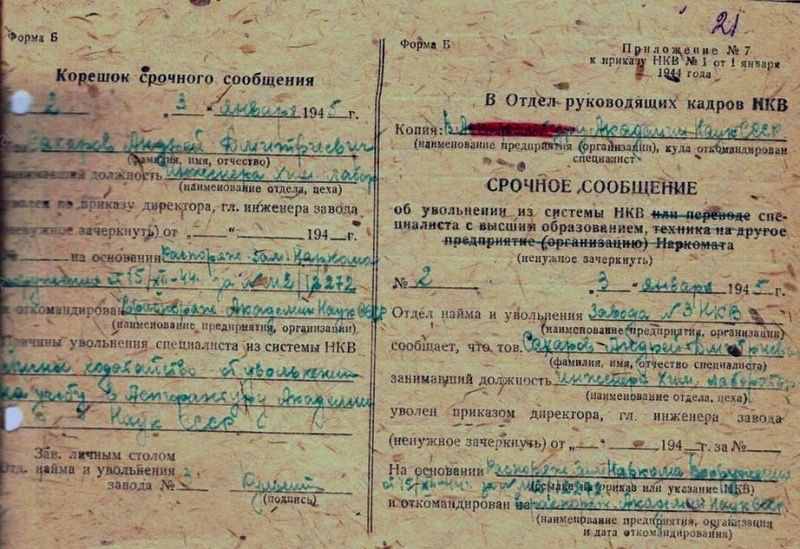 Форма Б
Корешок срочного сообщения
2 „3“ января 1945 г.
Сахаров Андрей Дмитриевич
(фамилия, имя, отчество)
должность инженера Хим. Лабор
(наименование отдела, цеха)
по приказу директора, гл. инженера завода
(ненужное зачеркнуть) от „ “ 194 г.
на основании Распоряж. Зам. Наркома
от 15/XII-44г. за № М2/12272
и откомандирован Академии Наук СССР
(наименование предприятия, организации)
Причины увольнения специалиста из системы НКВ
ходатайство об увольнении
на учебу в Аспирантуру Академии
Наук СССР
Зав. личным столом
Отд. найма и увольнения
завода № 3
(подпись)
21
Форма Б
Приложение № 7
к приказу НКВ № 1 от 1 января
1944 года
В Отдел руководящих кадров НКВ
Копия: В Академии Наук СССР
(наименование предприятия (организации), куда откомандирован
специалист)
СРОЧНОЕ СООБЩЕНИЕ
об увольнении из системы НКВ или переводе спе-
циалиста с высшим образованием, техника на другое
предприятие (организацию) Наркомата
(ненужное зачеркнуть)
№ 2 „3“ января 1945 г.
Отдел найма и увольнения Завода № 3 НКВ
(наименование предприятия, организации)
сообщает, что тов. Сахаров Андрей Дмитриевич
(фамилия, имя, отчество специалиста)
занимавший должность инженера Хим. Лаборатор
(наименование отдела, цеха)
уволен приказом директора, гл. инженера завода
(ненужное зачеркнуть) от „ “ 194 г. за №
На основании Распоряж. Зам. Наркома Вооружения
от 15/XII-44г. за №
(ссылка на приказ или указание НКВ)
и откомандирован Академии Наук СССР
(наименование предприятия, организация
и дата откомандирования)